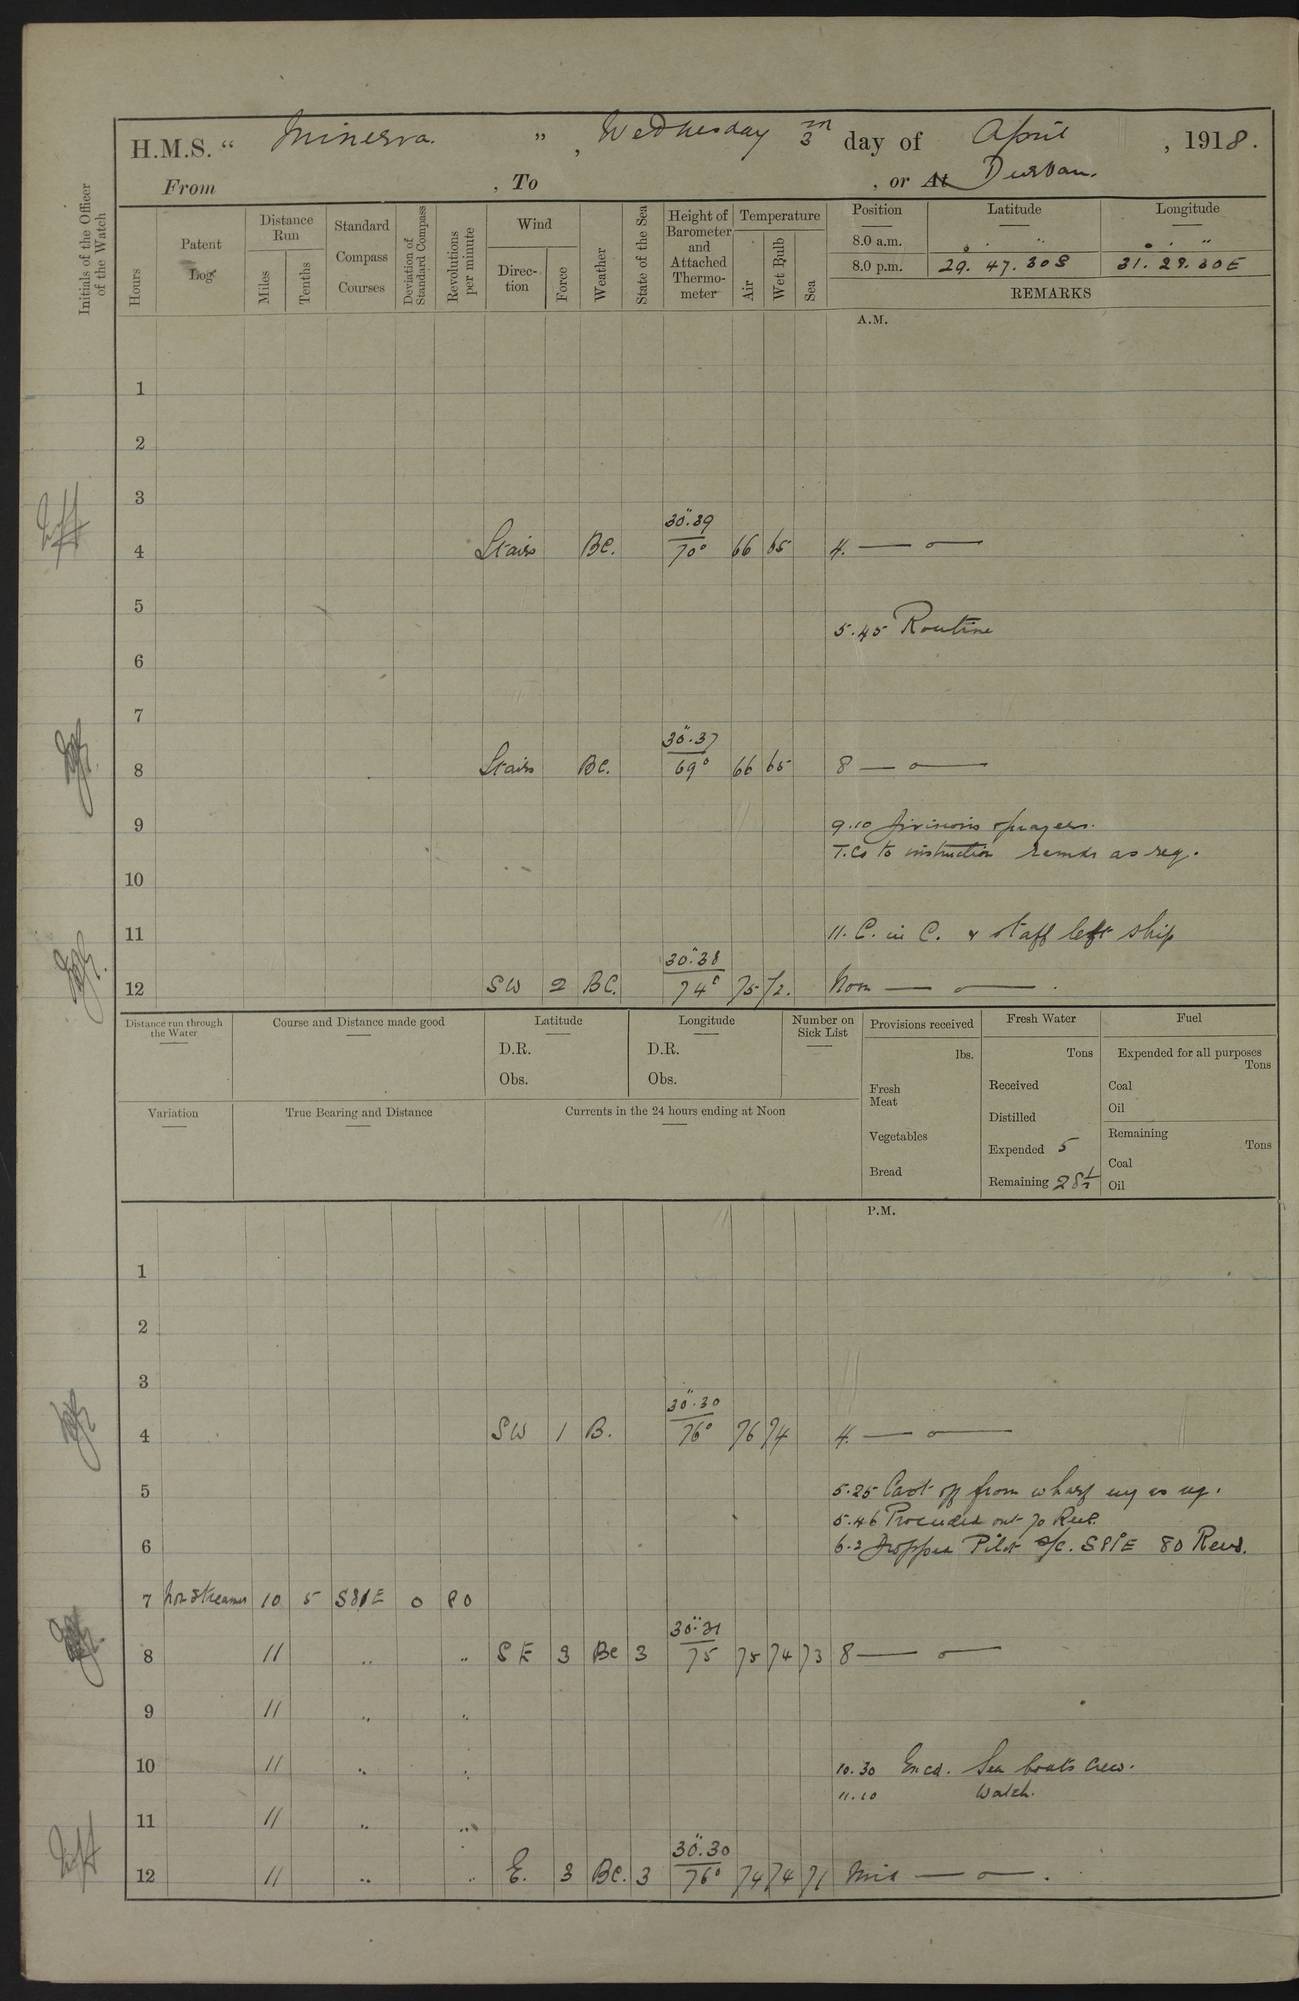 H.M.S. “ Minerva. ” , Wednesday 3rd day of April , 1918.
From , To , or At Durban.
Initials of the Officer of the Watch
Hours
Patent Log
Distance Run
Miles
Tenths
Standard Compass Courses
Deviation of Standard Compass
Revolutions per minute
Wind
Direc-tion
Force
Weather
State of the Sea
Height of Barometer and Attached Thermo-meter
Temperature
Air
Wet Bulb
Sea
Position Latitude Longitude
8.0 a.m. ° ' "  ° ' "
8.0 p.m. 29. 47. 30 S 31. 29. 30 E
REMARKS
A.M.
1
2
3
30".39
4 BC. 70° 66 65 4. — o —
5
5.45 Routine
6
7
30".37
8 BC. 69° 66 65 8 — o —
9 9.10 Divisions & prayers.
T.Cs to instruction as req.
10
11 11. C. in C. & staff left ship
30".38
12 SW 2 BC. 74° 75 72. Noon — o — .
Distance run through the Water
Course and Distance made good
Latitude
D.R.
Obs.
Longitude
D.R.
Obs.
Number on Sick List
Provisions received
lbs.
Fresh Meat
Vegetables
Bread
Fresh Water
Tons
Received
Distilled
Expended 5
Remaining 28½
Fuel
Expended for all purposes
Tons
Coal
Oil
Remaining
Tons
Coal
Oil
Variation
True Bearing and Distance
Currents in the 24 hours ending at Noon
P.M.
1
2
3
30".30
4 SW 1 B. 76° 76 74 4. — o —
5 5.25 Cast off from wharf
5.46 Proceeded out 70 Revs.
6 6.2 Dropped Pilot a/c. S81E 80 Revs.
7 Not Streamed 10 5 S81E 0 80
30".31
8 11 " " SE 3 BC 3 75 75 74 73 8 — o —
9 11 " "
10 11 " " 10.30 Excd. Sea boats crew.
11.10 Watch.
11 11 " "
30".30
12 11 " " E. 3 BC. 3 76° 74 74 71 Mid — o — .